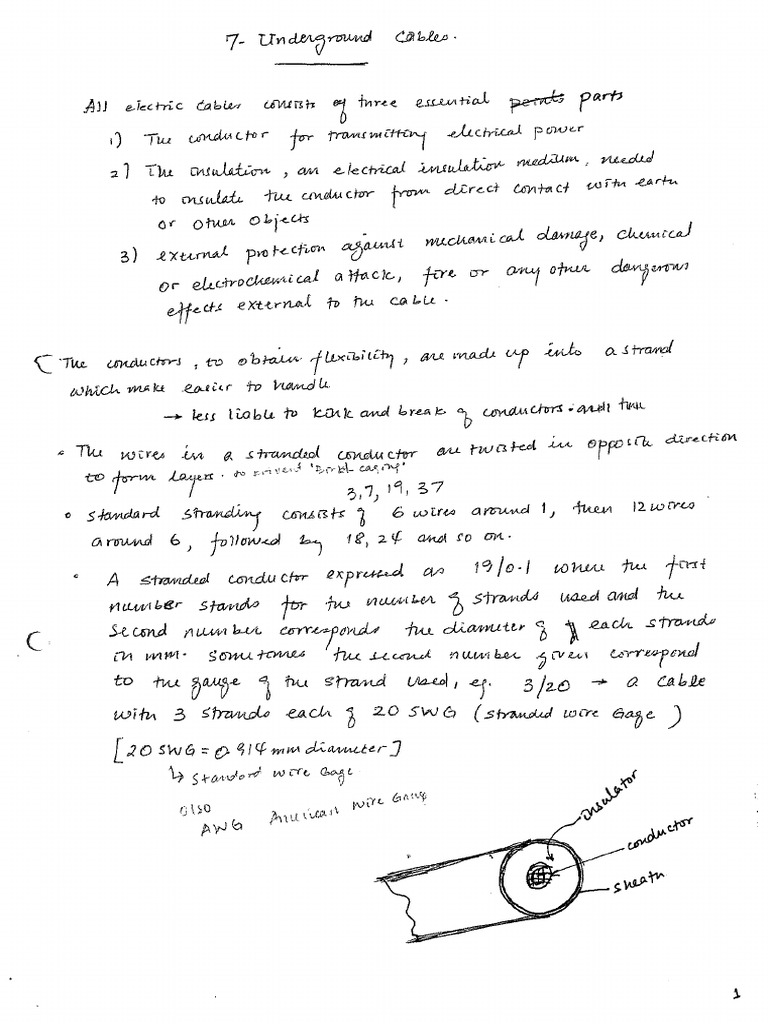 7- Underground Cables.
All electric cables consists of three essential points parts
1) The conductor for transmitting electrical power
2) The insulation, an electrical insulation medium, needed
to insulate the conductor from direct contact with earth
or other objects
3) external protection against mechanical damage, chemical
or electrochemical attack, fire or any other dangerous
effects external to the cable.
The conductors, to obtain flexibility, are made up into a strand
which make easier to handle
→ less liable to kink and break of conductors.
• The wires in a stranded conductor are twisted in opposite direction
to form layers. to prevent "Bird caging"
3, 7, 19, 37
• Standard stranding consists of 6 wires around 1, then 12 wires
around 6, followed by 18, 24 and so on.
• A stranded conductor expressed as 19/0.1 where the first
number stands for the number of strands used and the
second number corresponds the diameter of each strands
in mm. sometimes the second number given correspond
to the gauge of the strand used, eg. 3/20 → a cable
with 3 strands each of 20 SWG (stranded wire Gage)
[20 SWG = 0.914 mm diameter]
↳ standard wire Gage
also
AWG American Wire Gauge
insulator
conductor
sheath
1